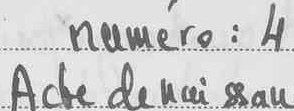 numéro : 4
Acte de nai ssan